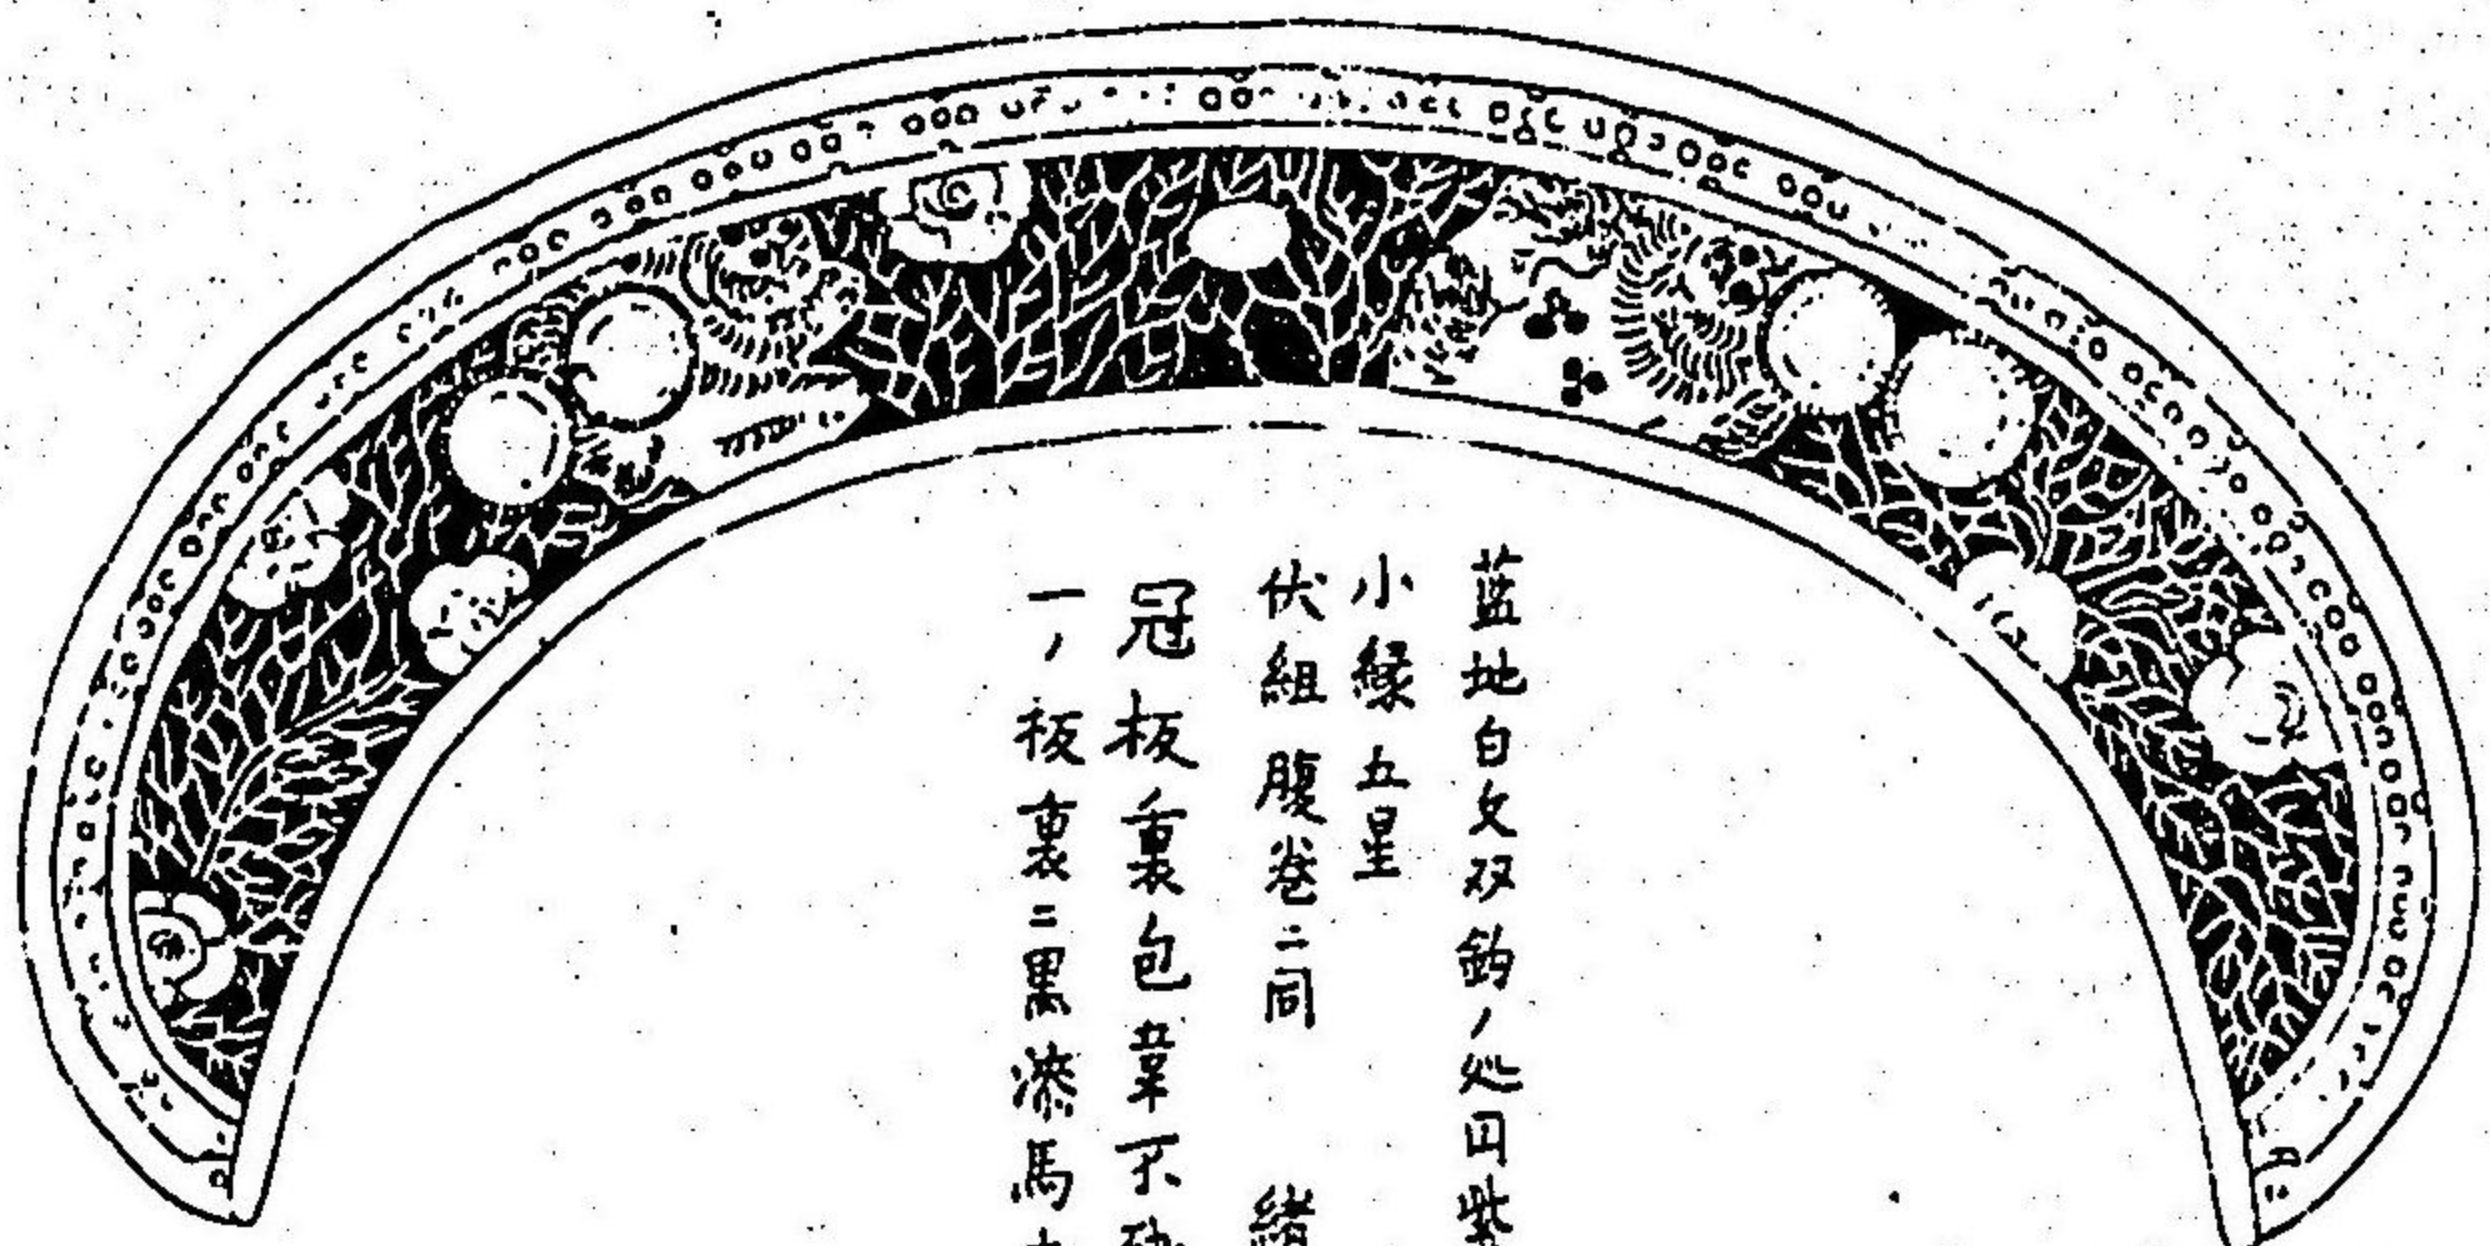 藍地白文双鈎ノ処田紫
小縁 五星
伏組 腹巻ニ同 緒
冠板裏包韋不
一ノ板裏ニ黒漆馬